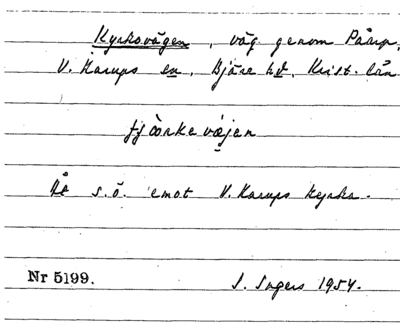 Kyrkovägen, väg genom Påarp,
V. Karups sn, Bjäre hd, Krist. län
tjörkevæjen
På s.ö. emot V. Karups kyrka.
Nr 5199. S. Ingers 1954.